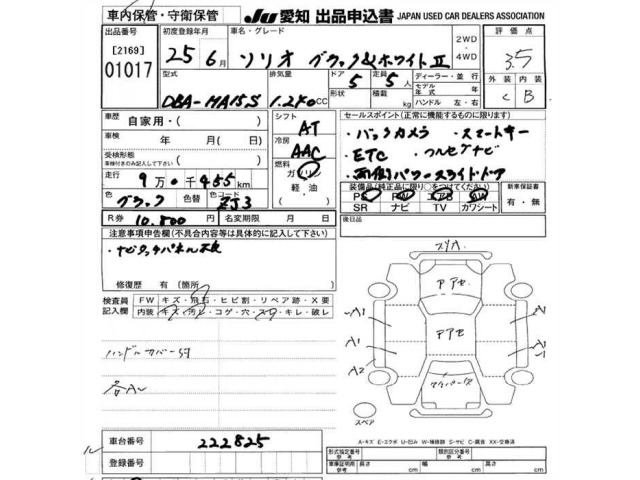 車内保管・守衛保管 JU 愛知 出品申込書 JAPAN USED CAR DEALERS ASSOCIATION
出品番号 初度登録年月 車名・グレード 評価点
[2169] 25年 6月 ソリオ ブラック&ホワイトⅡ 2WD・4WD 3.5
01017
型式 排気量 ドア 定員 ディーラー・並行 外装 内装
DBA-MA15S 1.240cc 5 5人 モデル年式 年 C B
形状 積載 kg ハンドル 左・右
車歴 自家用・( ) シフト AT セールスポイント(正常に機能するものに限ります)
車検 年 月(日) 冷房 AAC ・バックカメラ ・スマートキー
受検形態 車検付きのみ記入して下さい 燃料 ガソリン・軽・油 ・ETC ・フルセグナビ
走行 9万0千455km ・両側パワースライドドア
色 ブラック 色替 色コード ZJ3 装備品(純正品に限り○をつけてください) 新車保証書
PS PW エアB AW 有・無
SR ナビ TV カワシート
R券 10.800円 名変期限 月 日 後日品
注意事項申告欄(不具合内容等は具体的に記入して下さい)
・ナビタッチパネル不良
修復歴 有(箇所 )
検査員記入欄 FW キズ・飛石・ヒビ割・リペア跡・X要
内装 キズ・汚レ・コゲ・穴・スレ・キレ・破レ
ハンドルカバー付
各A
スリA
アアセ
A1 A1
アアセ
A1 A1
A2
スペア
A-キズ E-エクボ U-凹み W-補修跡 S-サビ C-腐食 XX-交換済
車台番号 222825
登録番号
形式指定番号 類別区分番号
車庫証明用参考 長さ cm 幅 cm 高さ cm